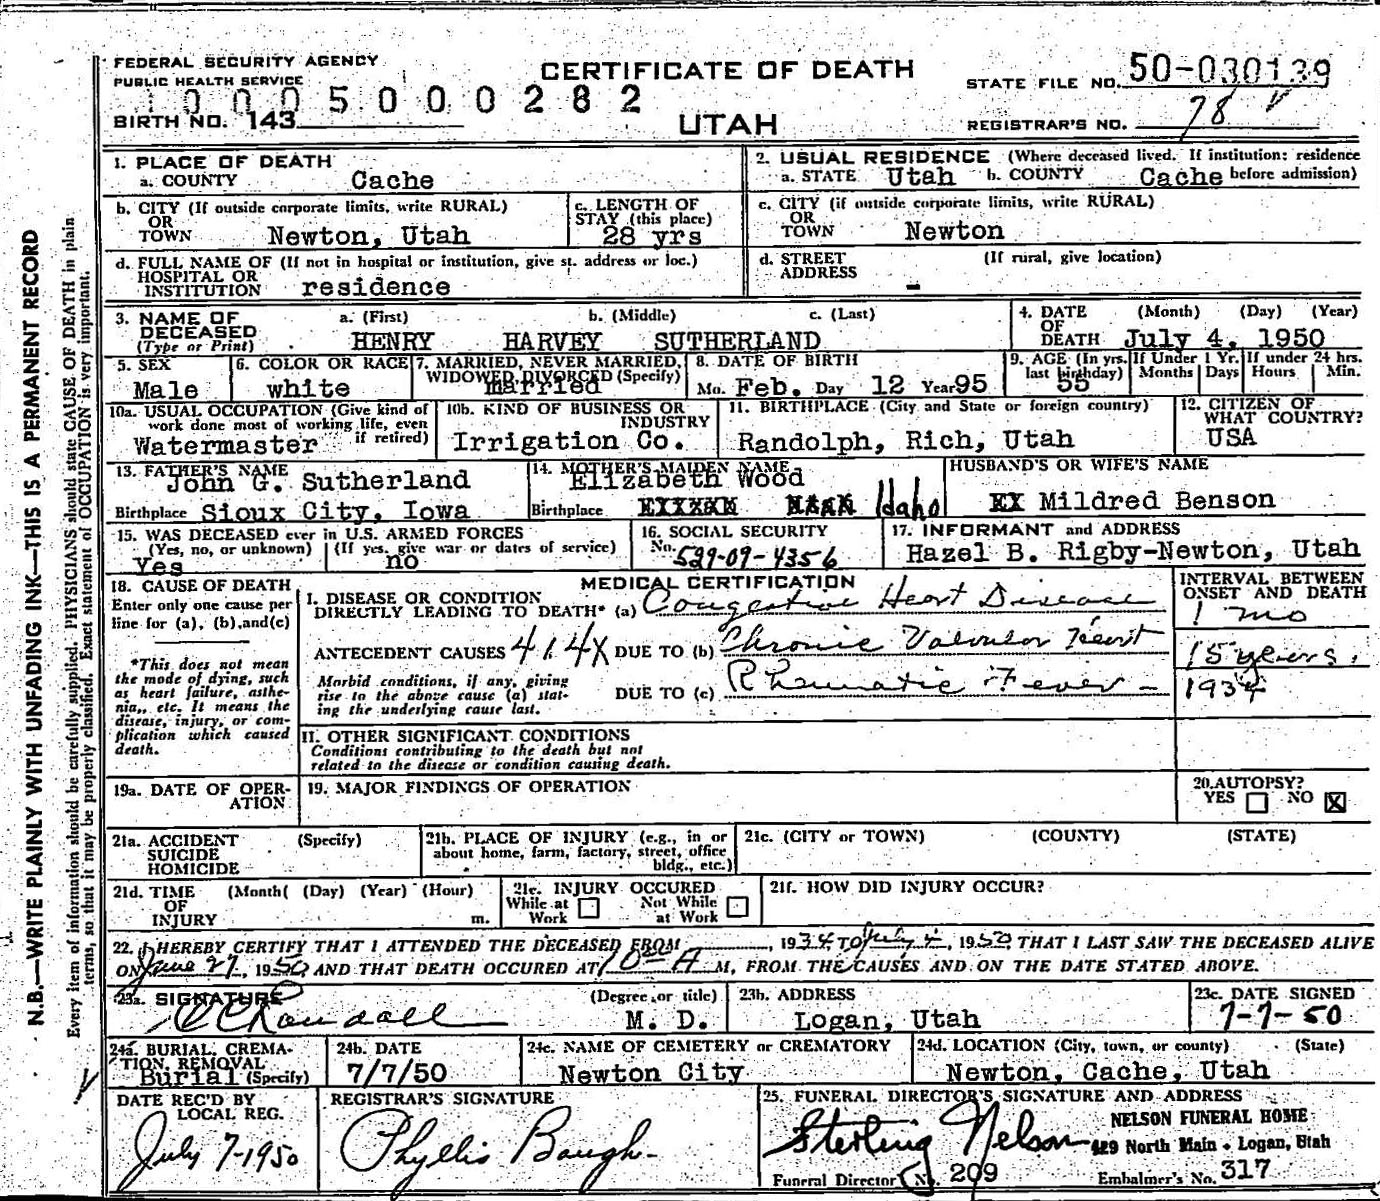 FEDERAL SECURITY AGENCY
PUBLIC HEALTH SERVICE
CERTIFICATE OF DEATH
STATE FILE NO. 50-030139
1 0 0 0 5 0 0 0 0 2 8 2
BIRTH NO. 143
UTAH
REGISTRAR'S NO. 78
N.B.—WRITE PLAINLY WITH UNFADING INK—THIS IS A PERMANENT RECORD
Every item of information should be carefully supplied. PHYSICIANS should state CAUSE OF DEATH in plain
terms, so that it may be properly classified. Exact statement of OCCUPATION is very important.
1. PLACE OF DEATH
a. COUNTY Cache
2. USUAL RESIDENCE (Where deceased lived. If institution: residence
a. STATE Utah b. COUNTY Cache before admission)
b. CITY (If outside corporate limits, write RURAL)
OR
TOWN Newton, Utah
c. LENGTH OF
STAY (this place)
28 yrs
c. CITY (if outside corporate limits, write RURAL)
OR
TOWN Newton
d. FULL NAME OF (If not in hospital or institution, give st. address or loc.)
HOSPITAL OR
INSTITUTION residence
d. STREET (If rural, give location)
ADDRESS -
3. NAME OF a. (First) b. (Middle) c. (Last)
DECEASED
(Type or Print) HENRY HARVEY SUTHERLAND
4. DATE (Month) (Day) (Year)
OF
DEATH July 4, 1950
5. SEX
Male
6. COLOR OR RACE
white
7. MARRIED, NEVER MARRIED,
WIDOWED DIVORCED (Specify)
married
8. DATE OF BIRTH
Mo. Feb. Day 12 Year 95
9. AGE (In yrs.
last birthday)
55
If Under 1 Yr.
Months Days
If under 24 hrs.
Hours Min.
10a. USUAL OCCUPATION (Give kind of
work done most of working life, even
if retired)
Watermaster
10b. KIND OF BUSINESS OR
INDUSTRY
Irrigation Co.
11. BIRTHPLACE (City and State or foreign country)
Randolph, Rich, Utah
12. CITIZEN OF
WHAT COUNTRY?
USA
13. FATHER'S NAME
John G. Sutherland
Birthplace Sioux City, Iowa
14. MOTHER'S MAIDEN NAME
Elizabeth Wood
Birthplace Idaho
HUSBAND'S OR WIFE'S NAME
Mildred Benson
15. WAS DECEASED ever in U.S. ARMED FORCES
(Yes, no, or unknown) (If yes, give war or dates of service)
Yes no
16. SOCIAL SECURITY
No. 529-09-4356
17. INFORMANT and ADDRESS
Hazel B. Rigby-Newton, Utah
18. CAUSE OF DEATH
Enter only one cause per
line for (a), (b), and (c)
*This does not mean
the mode of dying, such
as heart failure, asthe-
nia,, etc. It means the
disease, injury, or com-
plication which caused
death.
MEDICAL CERTIFICATION
I. DISEASE OR CONDITION
DIRECTLY LEADING TO DEATH* (a) Congestive Heart Disease
ANTECEDENT CAUSES 414X DUE TO (b) Chronic Valvular Heart
Morbid conditions, if any, giving
rise to the above cause (a) stat-
ing the underlying cause last.
DUE TO (c) Rheumatic Fever -
INTERVAL BETWEEN
ONSET AND DEATH
1 mo
15 years.
1934
II. OTHER SIGNIFICANT CONDITIONS
Conditions contributing to the death but not
related to the disease or condition causing death.
19a. DATE OF OPER-
ATION
19. MAJOR FINDINGS OF OPERATION
20. AUTOPSY?
YES NO X
21a. ACCIDENT (Specify)
SUICIDE
HOMICIDE
21b. PLACE OF INJURY (e.g., in or
about home, farm, factory, street, office
bldg., etc.)
21c. (CITY or TOWN) (COUNTY) (STATE)
21d. TIME (Month( (Day) (Year) (Hour)
OF
INJURY m.
21e. INJURY OCCURED
While at Not While
Work at Work
21f. HOW DID INJURY OCCUR?
22. I HEREBY CERTIFY THAT I ATTENDED THE DECEASED FROM , 1934 TO July 4, 1950 THAT I LAST SAW THE DECEASED ALIVE
ON June 27, 1950 AND THAT DEATH OCCURED AT 10 A M, FROM THE CAUSES AND ON THE DATE STATED ABOVE.
23a. SIGNATURE (Degree or title)
Randall M. D.
23b. ADDRESS
Logan, Utah
23c. DATE SIGNED
7-7-50
24a. BURIAL, CREMA-
TION, REMOVAL
Burial (Specify)
24b. DATE
7/7/50
24c. NAME OF CEMETERY or CREMATORY
Newton City
24d. LOCATION (City, town, or county) (State)
Newton, Cache, Utah
DATE REC'D BY
LOCAL REG.
July 7-1950
REGISTRAR'S SIGNATURE
Phyllis Baugh
25. FUNERAL DIRECTOR'S SIGNATURE AND ADDRESS
Sterling Nelson
NELSON FUNERAL HOME
429 North Main - Logan, Utah
Funeral Director No. 209
Embalmer's No. 317